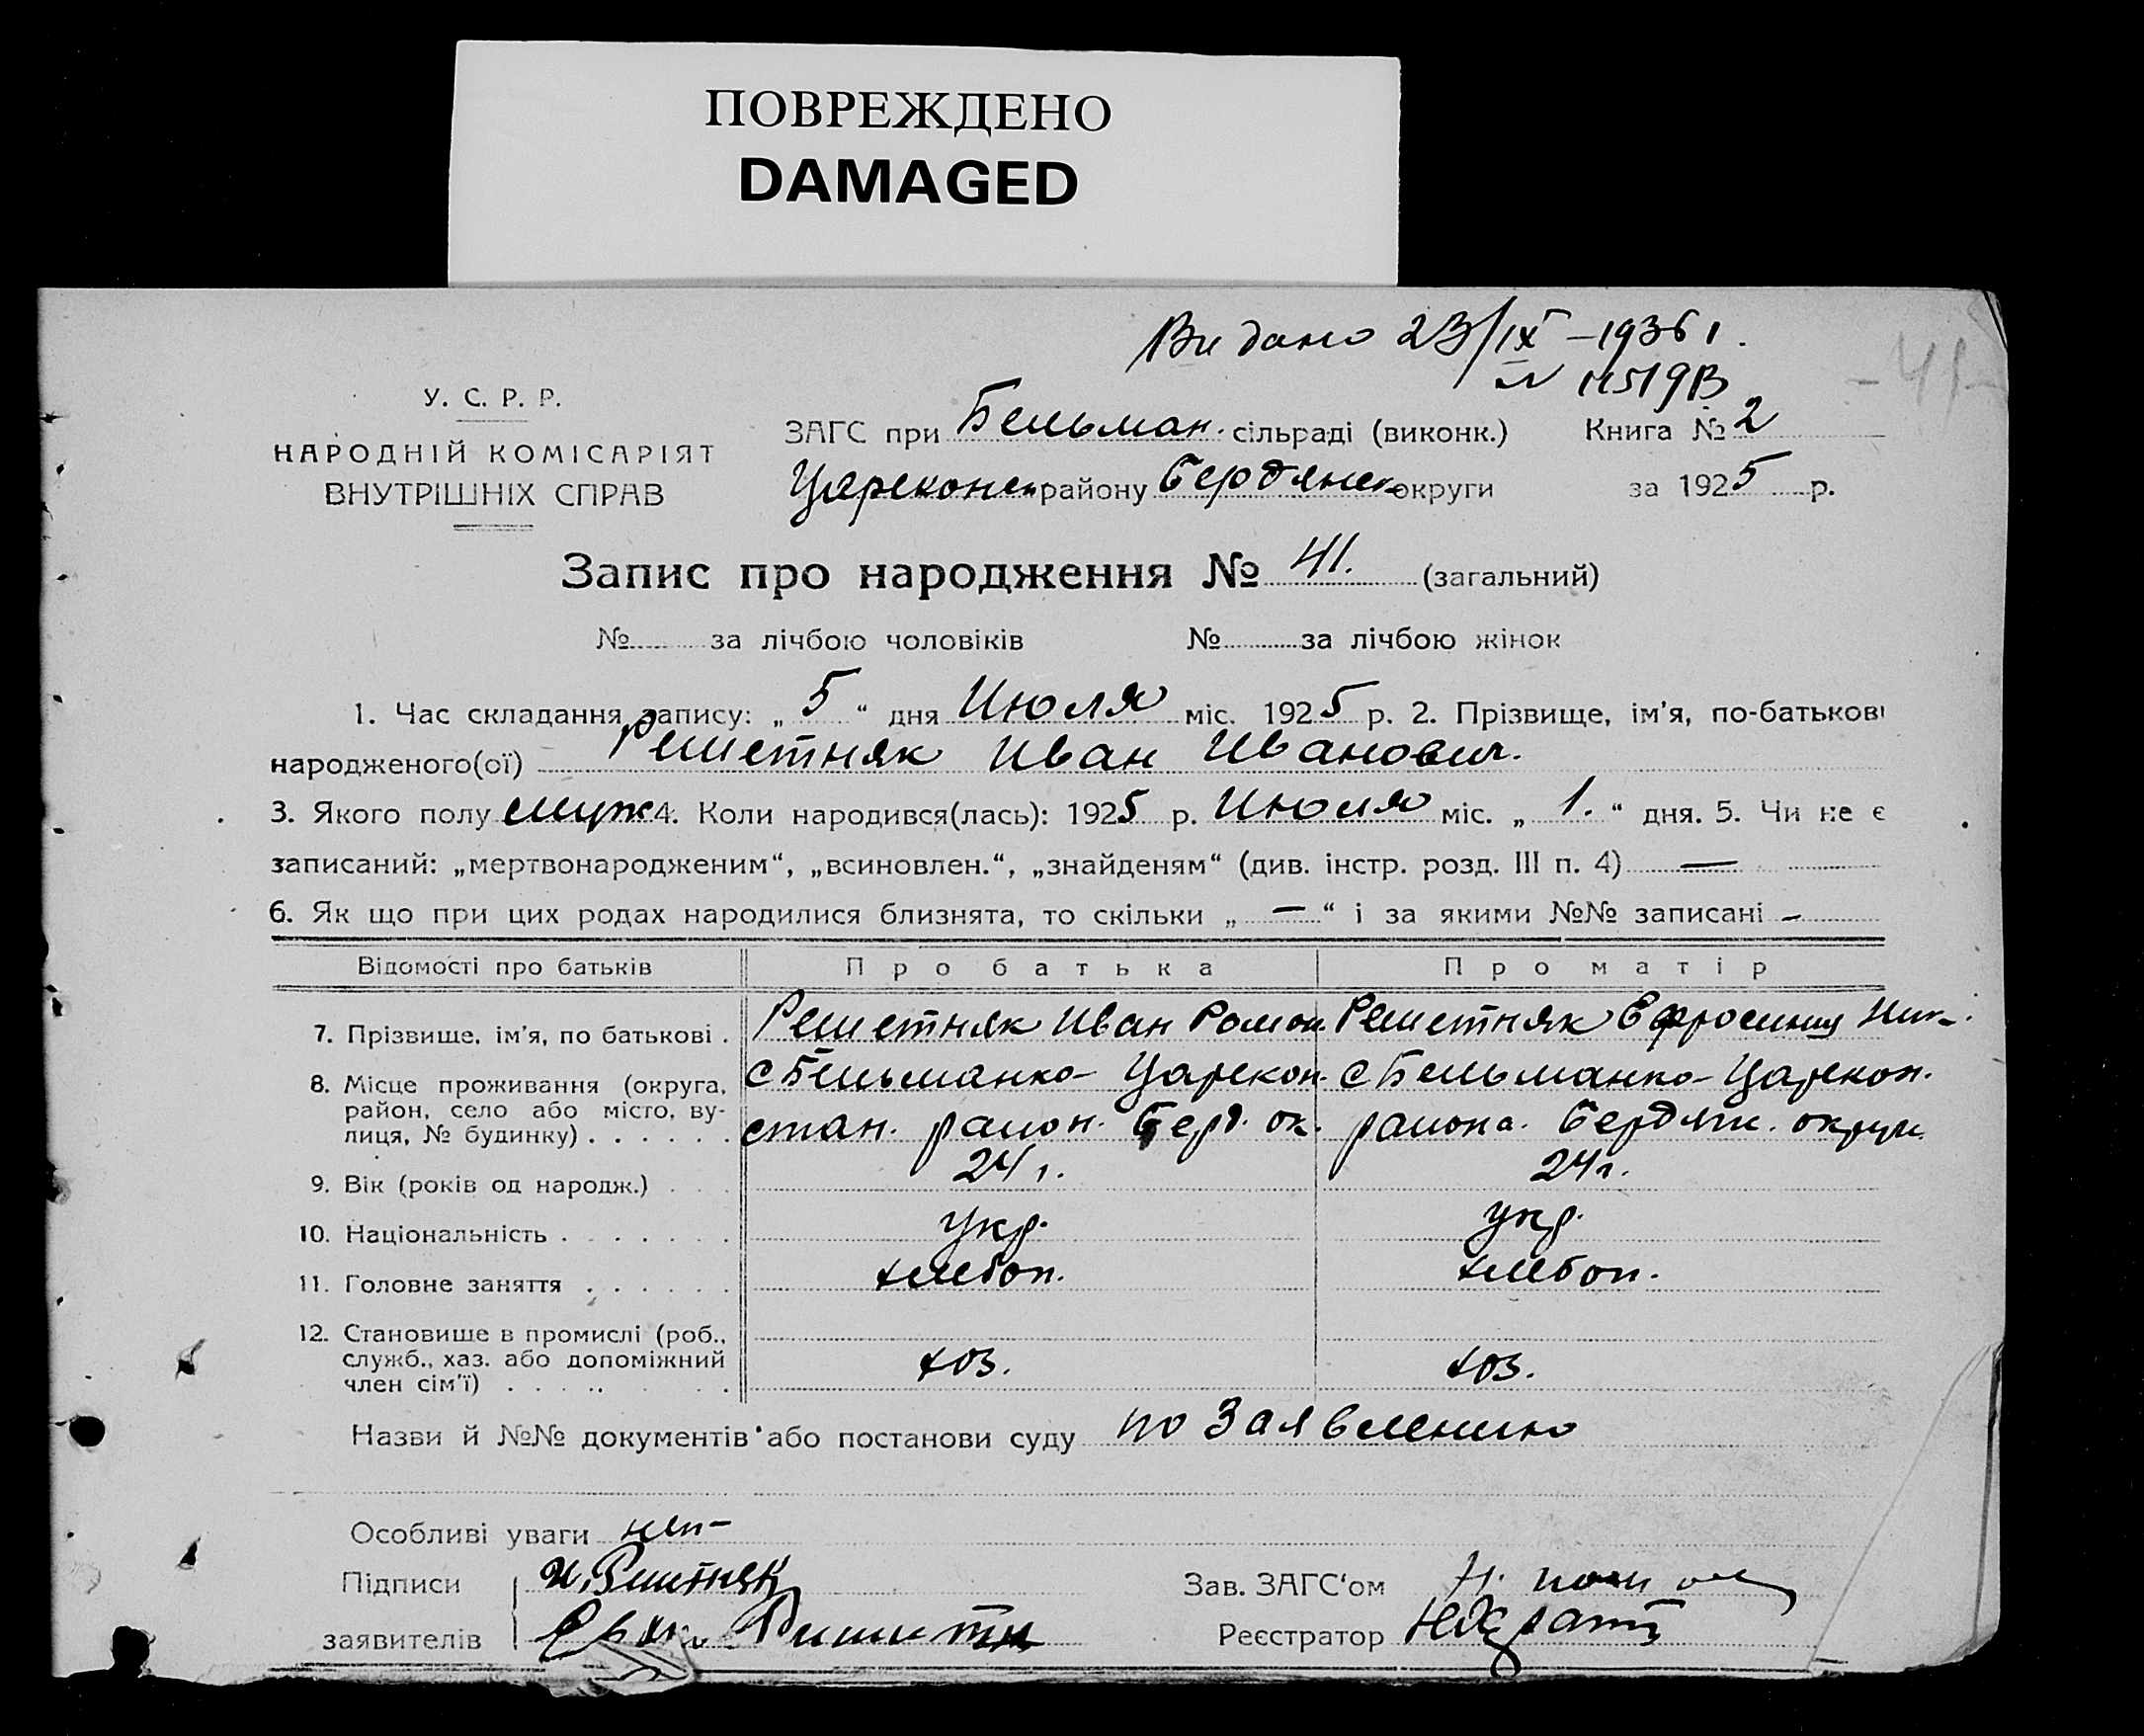 ПОВРЕЖДЕНО
DAMAGED
Видано 23/IX – 1936 г.
№ 11519В
- 41 -
У. С. Р. Р.
НАРОДНІЙ КОМІСАРІЯТ
ВНУТРІШНІХ СПРАВ
ЗАГС при Бельман. сільраді (виконк.) Книга № 2
Цареконс. району Бердянск. округи за 1925 р.
Запис про народження № 41. (загальний)
№ за лічбою чоловіків № за лічбою жінок
1. Час складання запису: „ 5 “ дня Июля міс. 1925 р. 2. Прізвище, ім’я, по-батькові
народженого(ої) Решетняк Иван Иванович.
3. Якого полу муж 4. Коли народився(лась): 1925 р. Июля міс. „ 1. “ дня. 5. Чи не є
записаний: „мертвонародженим“, „всиновлен.“, „знайденям“ (див. інстр. розд. III п. 4) —
6. Як що при цих родах народилися близнята, то скільки „ — “ і за якими №№ записані –
Відомості про батьків Про батька Про матір
7. Прізвище, ім’я, по батькові . Решетняк Иван Роман. Решетняк Ефросиния Ник.
8. Місце проживання (округа, район, село або місто, вулиця, № будинку) . . . . . .
с Бельманко- Царекон- стан. район. Берд. ок.
с Бельманко- Царекон. района. Бердян. округи
9. Вік (років од народж.) . . . 24 г. 24 г.
10. Національність . . . . . . . Укр. укр.
11. Головне заняття . . . . . . хлебоп. хлебоп.
12. Становище в промислі (роб., служб., хаз. або допоміжний член сім’ї) . . . . . хоз. хоз.
Назви й №№ документів або постанови суду по заявлению
Особливі уваги нет
Підписи И. Решетняк Зав. ЗАГС‘ом
заявителів Реєстратор